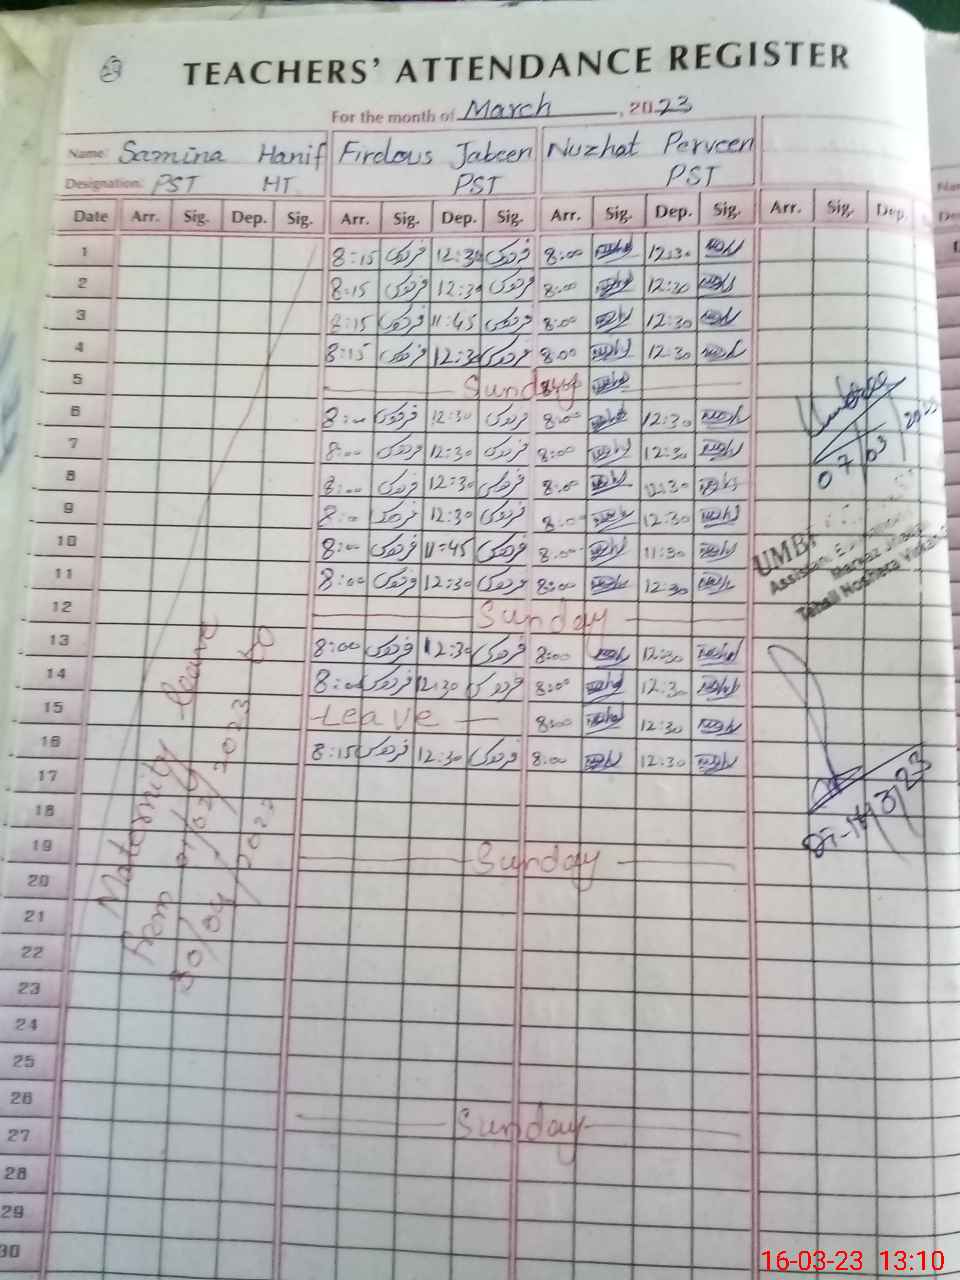 TEACHERS' ATTENDANCE REGISTER
For the month of March, 2023
Name: Samina Hanif Firdous Jabeen Nuzhat Perveen
Designation: PST HT PST PST
Date Arr. Sig. Dep. Sig. Arr. Sig. Dep. Sig. Arr. Sig. Dep. Sig. Arr. Sig. Dep.
1 8:15 فردوس 12:30 فردوس 8:00 12:30
2 8:15 فردوس 12:30 فردوس 8:00 12:30
3 8:15 فردوس 11:45 فردوس 8:00 12:30
4 8:15 فردوس 12:30 فردوس 8:00 12:30
5 Sunday
6 8:00 فردوس 12:30 فردوس 8:00 12:30
7 8:00 فردوس 12:30 فردوس 8:00 12:30
8 8:00 فردوس 12:30 فردوس 8:00 12:30
9 8:00 فردوس 12:30 فردوس 8:00 12:30
10 8:00 فردوس 11:45 فردوس 8:00 11:30
11 8:00 فردوس 12:30 فردوس 8:00 12:30
12 Sunday
13 8:00 فردوس 12:30 فردوس 8:00 12:30
14 8:00 فردوس 12:30 فردوس 8:00 12:30
15 Leave 8:00 12:30
16 8:15 فردوس 12:30 فردوس 8:00 12:30
17
18
19 Sunday
20
21
22
23
24
25
26 Sunday
27
28
29
30
Maternity leave
from 01/02/2023 to
30/04/2023
07/03/2023
Assistant
Markaz
Tehsil Noshera
16-03-23 13:10